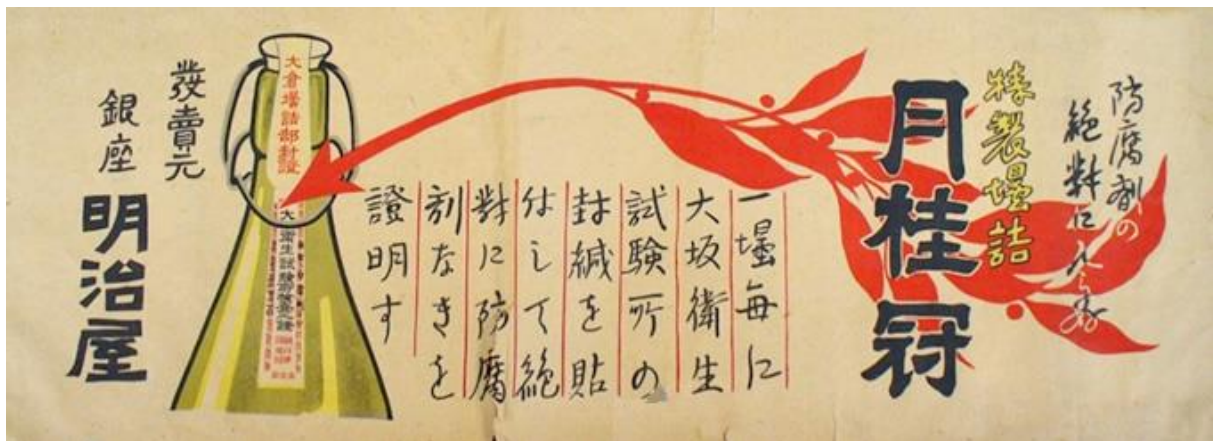 防腐剤の
絶對に入らぬ
特製壜詰
月桂冠
一壜毎に
大坂衛生
試験所の
封緘を貼
付して絶
對に防腐
剤なきを
證明す
大倉壜詰部封證
發賣元
銀座
明治屋